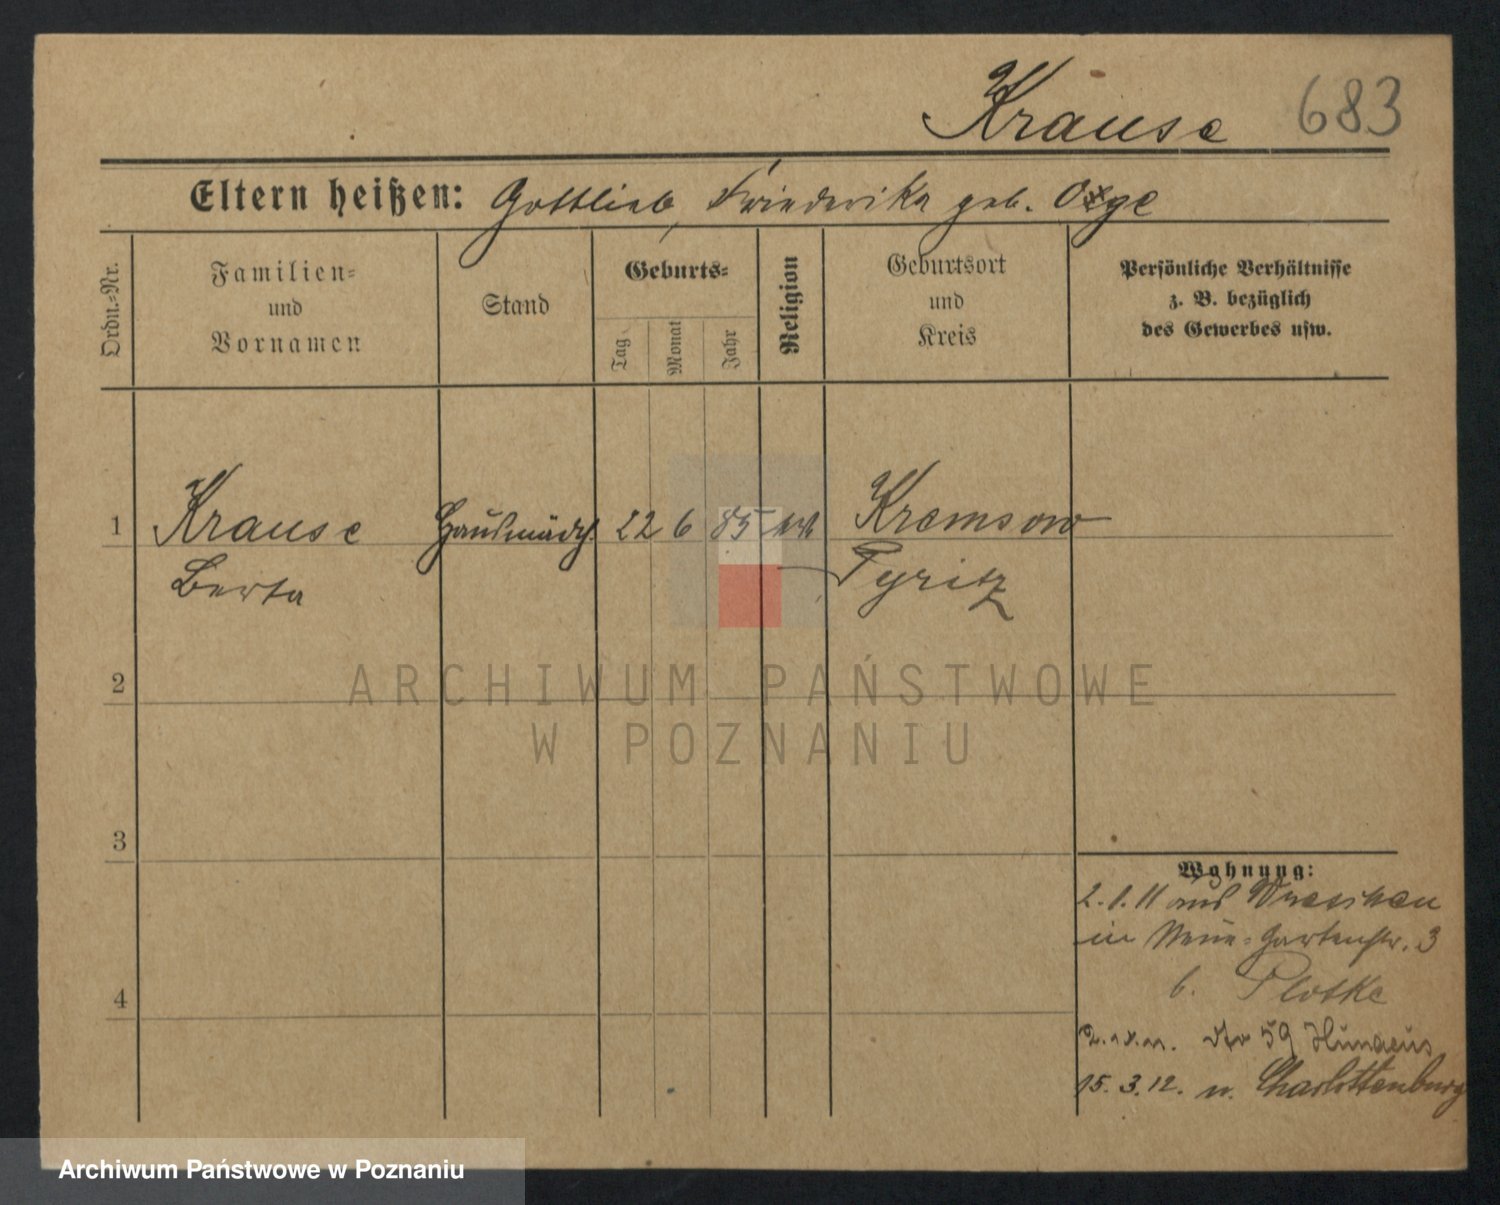 Krause 683
Eltern heißen: Gottlieb, Friederike geb.
Ordn.-Nr.
Familien-
und
Vornamen
Stand
Geburts-
Tag
Monat
Jahr
Religion
Geburtsort
und
Kreis
Persönliche Verhältnisse
z. B. bezüglich
des Gewerbes usw.
1 Krause Hausmädch. 22 6 85 Kremsow
Berta Pyritz
2
ARCHIWUM PAŃSTWOWE
W POZNANIU
3
Wohnung:
2.1.11 aus Wreschen
in Neue-Gartenstr. 3
4
b. Plotke
59 Hunaeus
15.3.12. n. Charlottenburg
Archiwum Państwowe w Poznaniu